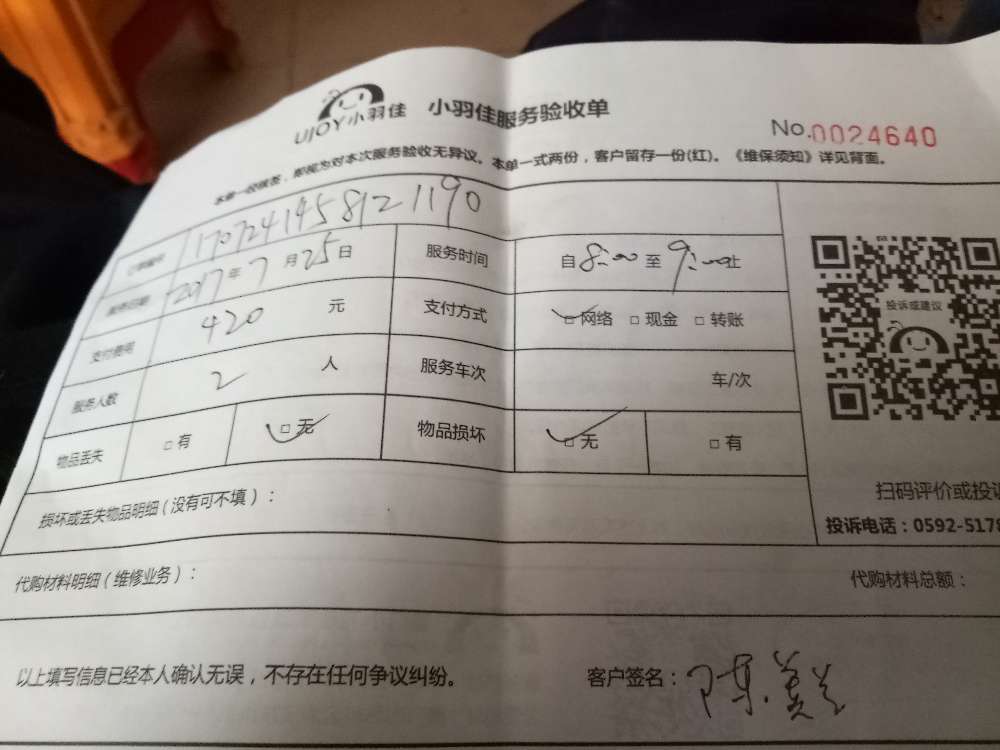 UJOY小羽佳 小羽佳服务验收单
No.0024640
本单一经核签，即视为对本次服务验收无异议。本单一式两份，客户留存一份(红)。《维保须知》详见背面。
订单编号 170724145812 1190
服务日期 2017年7月25日 服务时间 自8:00至9:00止
支付费用 420 元 支付方式 □网络 □现金 □转账
投诉或建议
服务人数 2 人 服务车次 车/次
物品丢失 □有 □无 物品损坏 □无 □有
扫码评价或投
损坏或丢失物品明细(没有可不填)：
投诉电话：0592-5178
代购材料明细(维修业务)： 代购材料总额：
以上填写信息已经本人确认无误，不存在任何争议纠纷。 客户签名：陈美